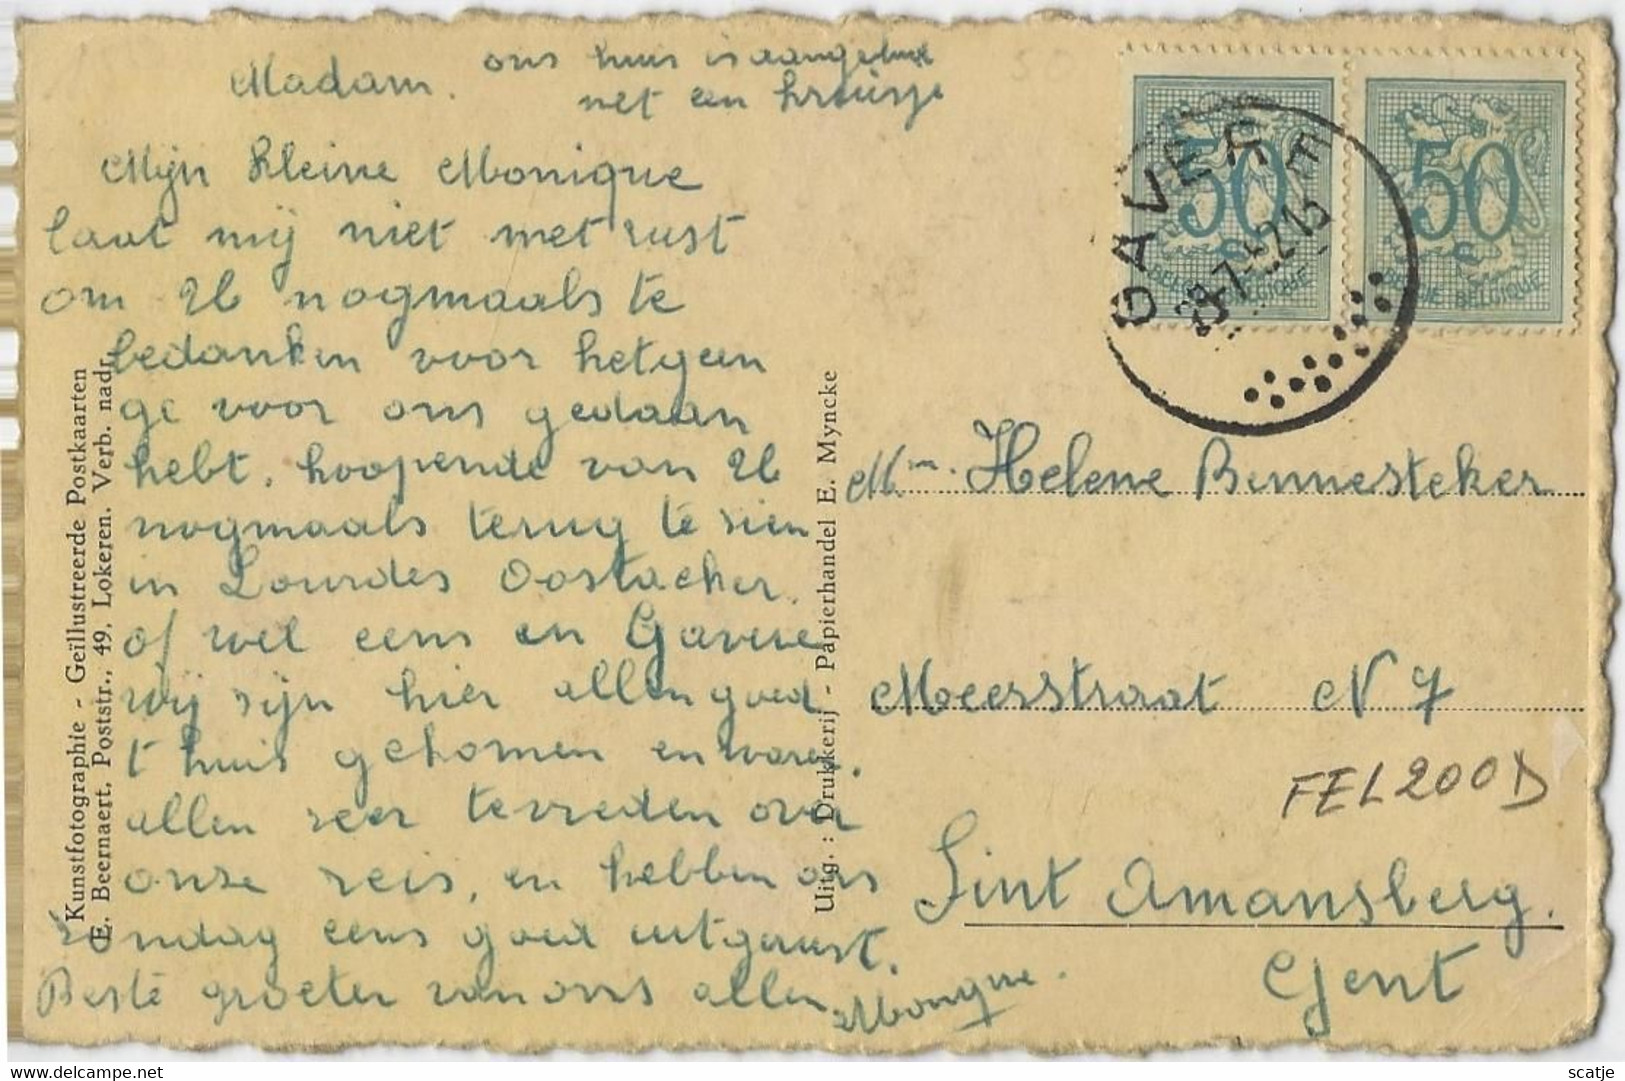 Madam.
ons huis is aangeduid
met een kruisje
Mijn kleine Monique
laat mij niet met rust
om U nogmaals te
bedanken voor hetgeen
ge voor ons gedaan
hebt, hoopende van U
nogmaals terug te zien
in Lourdes Oostacker.
of wel eens en Gavere
wij zijn hier allen goed
t huis gekomen en waren
allen zeer tevreden over
onze reis, en hebben ons
zondag eens goed uitgerust.
Beste groeten van ons allen
Monique.
Kunstfotographie - Geïllustreerde Postkaarten
E. Beernaert, Poststr., 49, Lokeren. Verb. nadr.
Uitg. : Drukkerij - Papierhandel E. Myncke
50 50
BELGIE BELGIQUE
BELGIE BELGIQUE
GAVERE
28-7-52 15
Mm. Helene Bennesteker
Meersstraat N 7
FEL200D
Sint Amansberg.
Gent
Te koop bij/For sale at/En vente chez/Zum Verkauf bei: www.delcampe.net
scatje